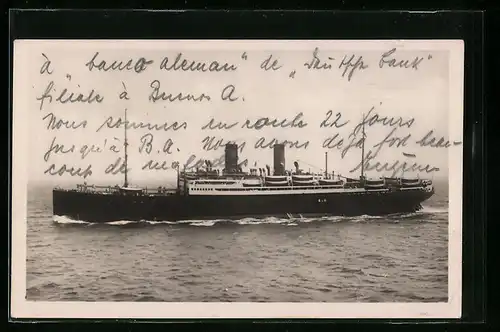 à "banco aleman" de "Deutsche Bank"
filiale à Buenos A.
Nous sommes en route 22 jours
jusqu'à B.A. Nous avons déjà fort beau-
coup de